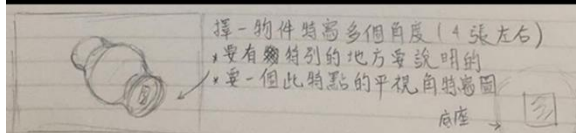 擇一物件特寫多個角度(4張左右)
*要有特別的地方要說明的
*要一個此特點的平視角特寫圖
底座